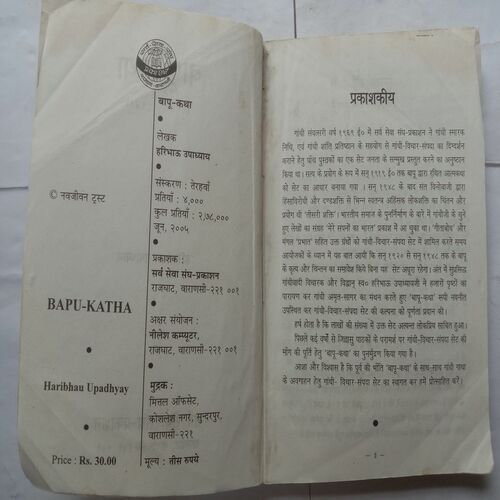 © नवजीवन ट्रस्ट
BAPU-KATHA
Haribhau Upadhyay
Price : Rs. 30.00
बापू-कथा
लेखक
हरिभाऊ उपाध्याय
संस्करण : तेरहवाँ
प्रतियाँ : ४,०००
कुल प्रतियाँ : २,७८,०००
जून, २००५
प्रकाशक :
सर्व सेवा संघ-प्रकाशन
राजघाट, वाराणसी-२२१ ००१
अक्षर संयोजन :
नीलेश कम्प्यूटर,
राजघाट, वाराणसी-२२१ ००१
मुद्रक :
मित्तल ऑफसेट,
कोशलेश नगर, सुन्दरपुर,
वाराणसी-२२१
मूल्य : तीस रुपये
प्रकाशकीय
गांधी संवत्सरी वर्ष १९६९ ई० में सर्व सेवा संघ-प्रकाशन ने गांधी स्मारक
निधि, एवं गांधी शांति प्रतिष्ठान के सहयोग से गांधी-विचार-संपदा का दिग्दर्शन
कराने हेतु पाँच पुस्तकों का एक सेट जनता के सम्मुख प्रस्तुत करने का अनुष्ठान
किया था। सत्य के प्रयोग के रूप में सन् १९१९ ई० तक बापू द्वारा रचित आत्मकथा
को सेट का आधार बनाया गया । सन् १९४८ के बाद संत विनोबाजी द्वारा
हिंसाविरोधी और दण्डशक्ति से भिन्न स्वतन्त्र अहिंसक लोकशक्ति का चिंतन और
प्रयोग थी 'तीसरी शक्ति'। भारतीय समाज के पुनर्निर्माण के बारे में गांधीजी के चुने
हुए लेखों का संग्रह 'मेरे सपनों का भारत' प्रकाश में आ चुका था। 'गीताबोध' और
मंगल 'प्रभात' सहित उक्त ग्रंथों को गांधी-विचार-संपदा सेट में शामिल करते समय
आयोजकों के ध्यान में यह बात आयी कि सन् १९२० से १९४८ तक के बापू
के कृत्य और चिन्तन का समावेश किये बिना यह सेट अपूर्ण रहेगा। अंत में सुप्रसिद्ध
गांधीवादी विचारक और विद्वान् स्व० हरिभाऊ उपाध्यायजी ने हजारों पृष्ठों का
पारायण कर गांधी अमृत-सागर का मंथन करते हुए 'बापू-कथा' रूपी नवनीत
उपस्थित कर गांधी-विचार-संपदा सेट की कल्पना को पूर्णता प्रदान की।
हर्ष होता है कि लाखों की संख्या में उक्त सेट अत्यन्त लोकप्रिय साबित हुआ।
पिछले कई वर्षों से जिज्ञासु पाठकों के परामर्श पर गांधी-विचार-संपदा सेट की
माँग की पूर्ति हेतु 'बापू-कथा' का पुनर्मुद्रण किया गया है।
आशा और विश्वास है कि पूर्व की भाँति 'बापू-कथा' के साथ-साथ गांधी गाथा
के अवगाहन हेतु गांधी- विचार-संपदा सेट का स्वागत कर हमें प्रोत्साहित करें।